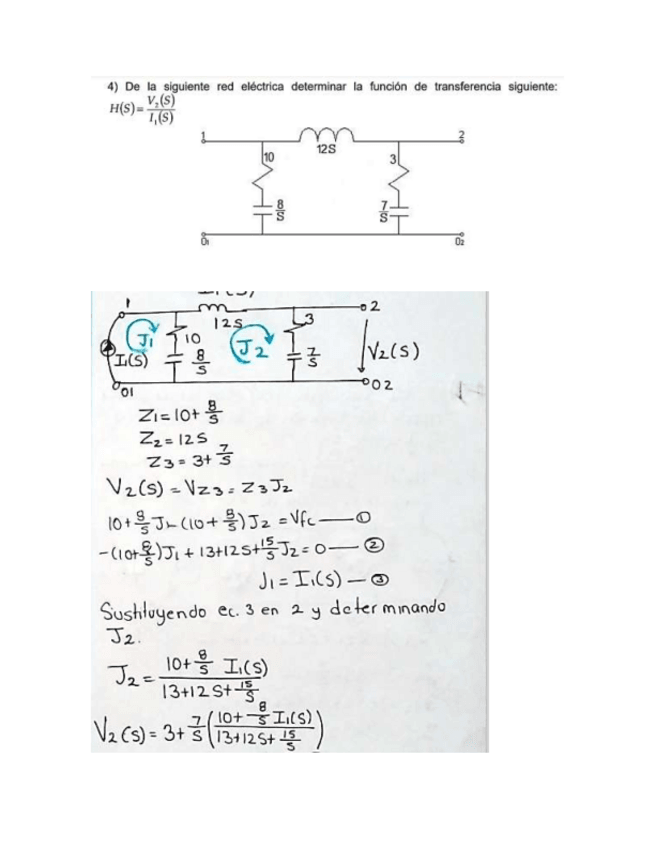 4) De la siguiente red eléctrica determinar la función de transferencia siguiente:
H(S)=V₂(S)/I₁(S)
1 12S 2
10 3
8/S 7/S
0₁ 0₂
1 12S 3 2
J1 10 J2
I₁(S) 8/S 7/S V₂(S)
01 02
Z1=10+8/S
Z2=12S
Z3=3+7/S
V2(S)=VZ3=Z3J2
10+8/S J1-(10+8/S)J2=Vfc—①
-(10+8/S)J1+13+12S+15/S J2=0—②
J1=I₁(S)—③
Sustituyendo ec. 3 en 2 y determinando
J2.
J2=(10+8/S I₁(S))/(13+12S+15/S)
V2(S)=3+7/S((10+8/S I₁(S))/(13+12S+15/S))